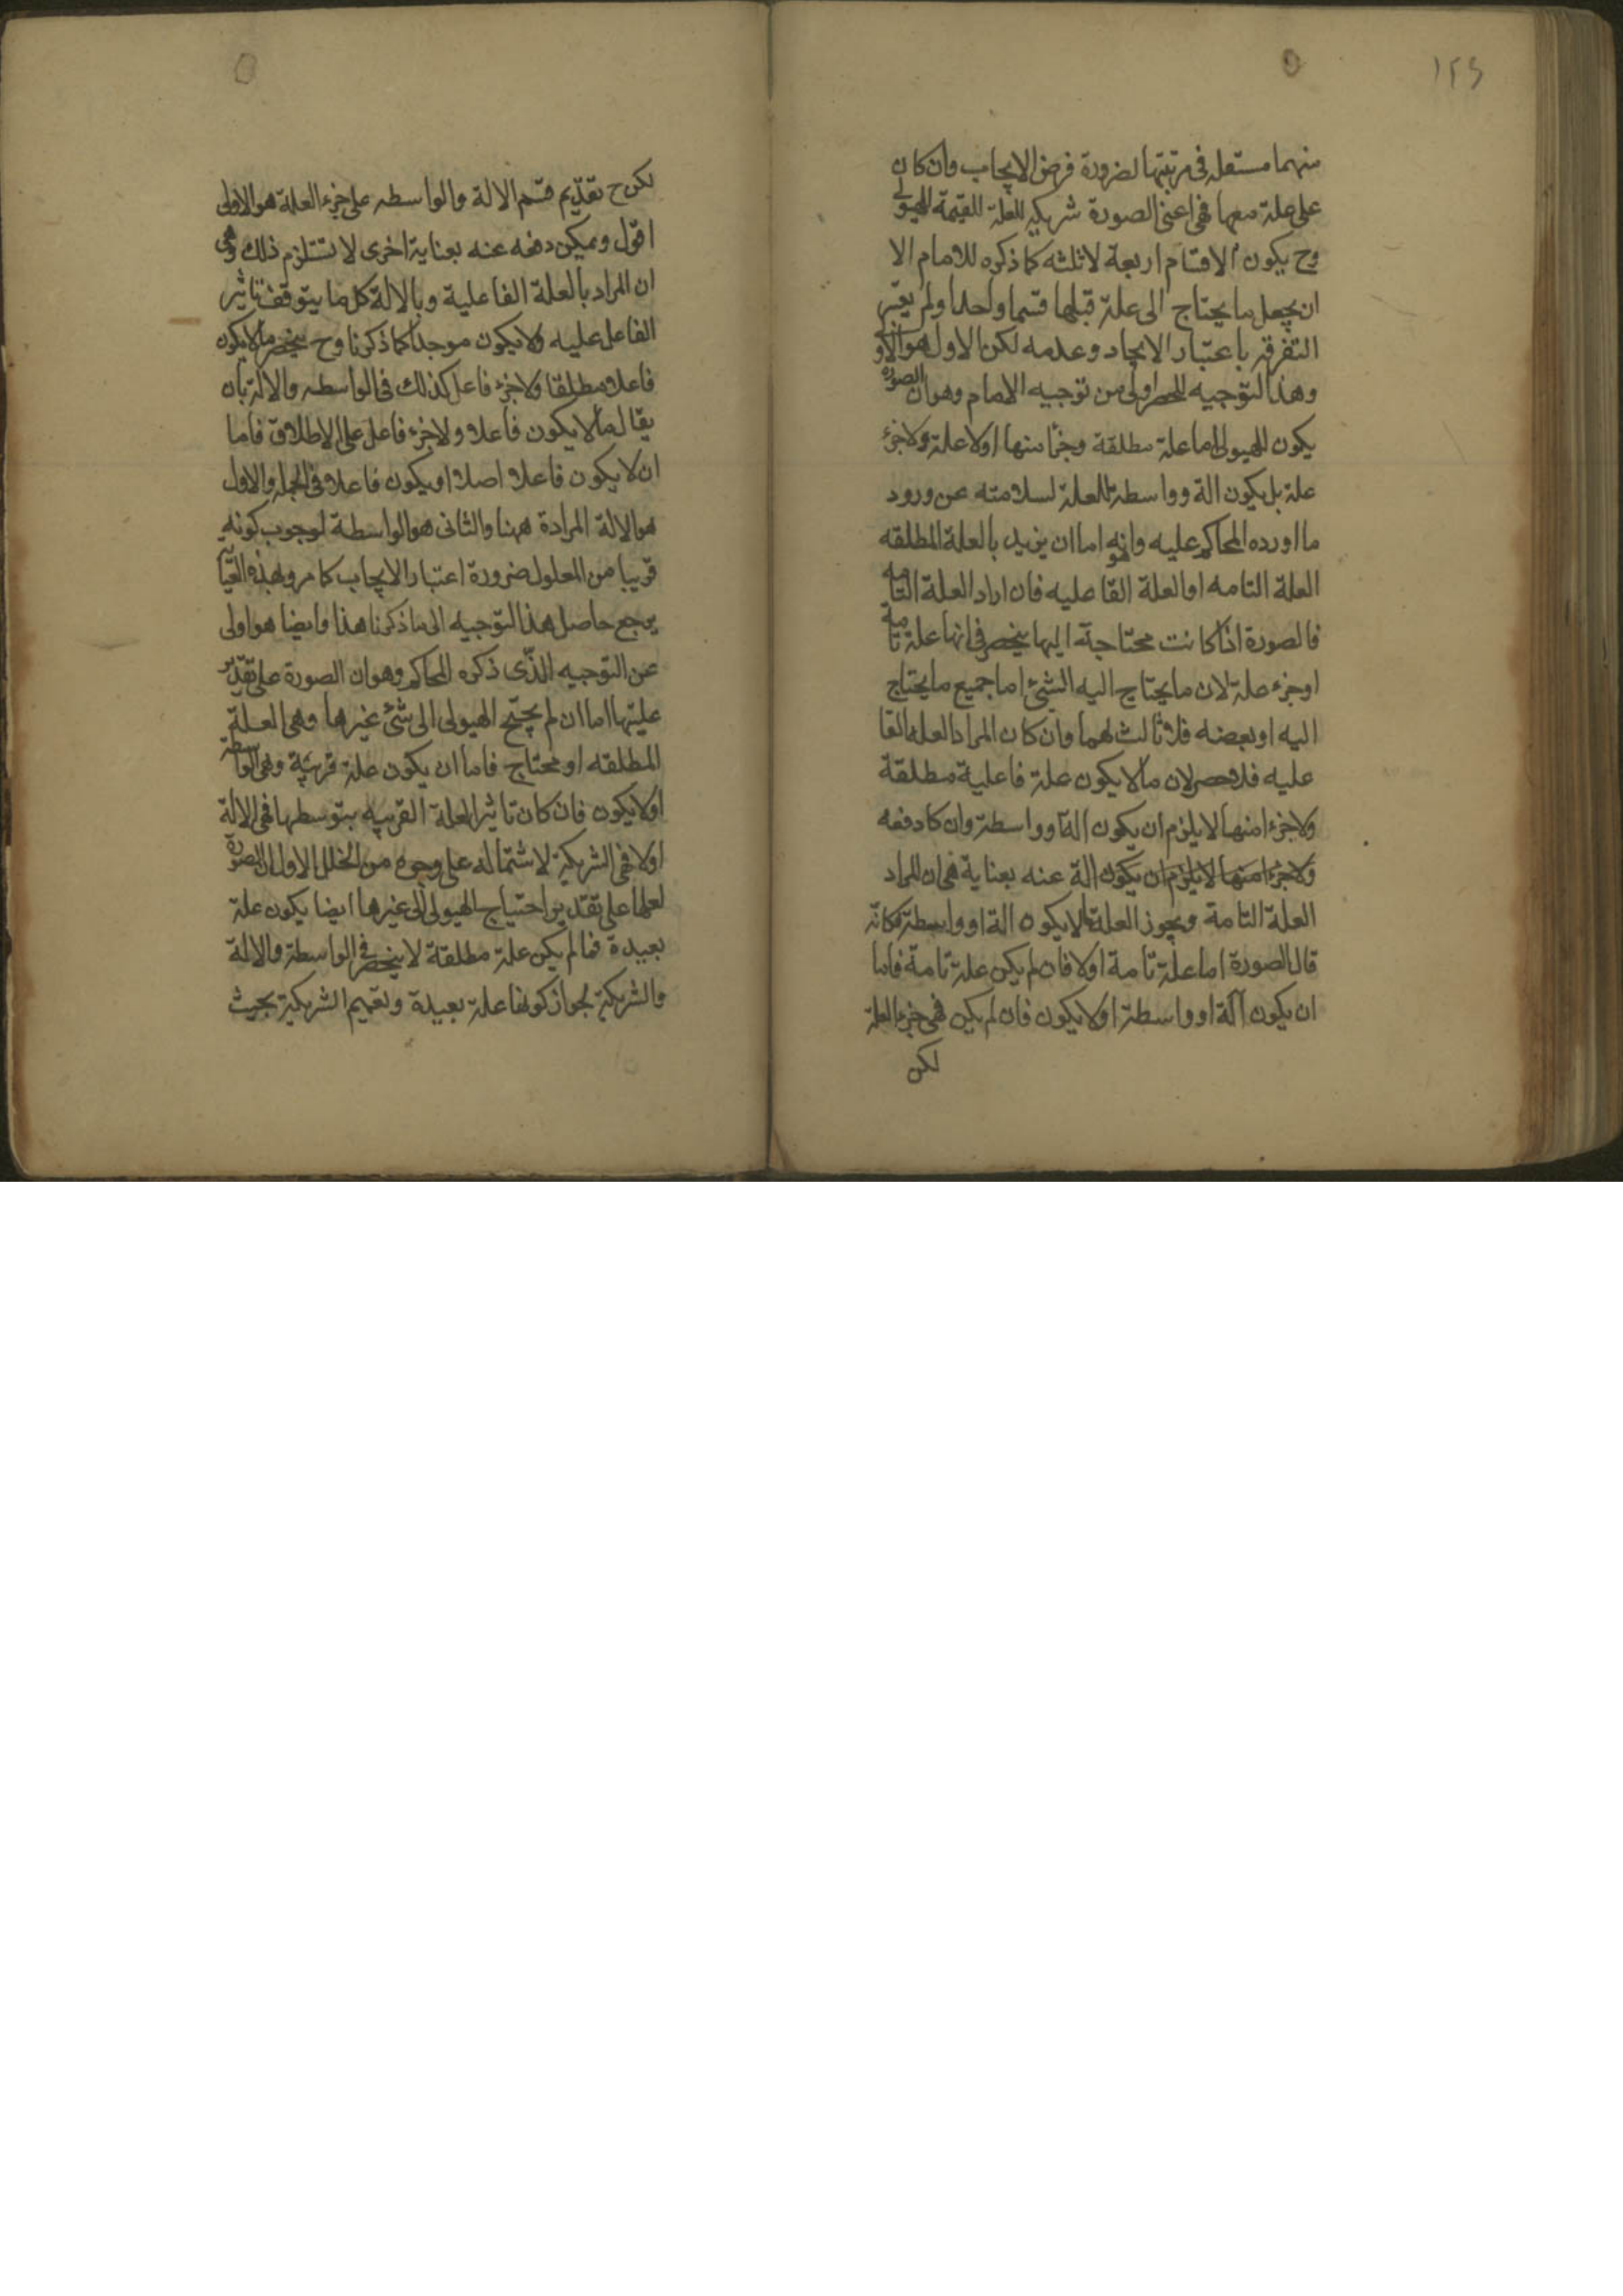 ١٢٤
منهما مستعلة في مرتبتها لضرورة فرض الايجاب وان كان
على علة معها فهى اعنى الصورة شريكه للعلة المقيمة للهيولى
وح يكون الاقسام اربعة لا ثلثه كما ذكره للامام الا
ان يجعل ما يحتاج الى علة قبلها قسما واحدا ولم يعتبر
التفرقه باعتبار الايجاد وعدمه لكن الاول هو الاو
وهذا التوجيه للحصر اولى من توجيه الامام وهو ان الصورة
يكون للهيولى اما علة مطلقة وجزأ منها اولا علة ولا جزء
علة بل يكون الة وواسطة للعلة لسلامته عن ورود
ما اورده المحاكم عليه وانه هو اما ان يريد بالعلة المطلقه
العلة التامه او العلة الفاعليه فان اراد العلة التامه
فالصورة اذا كانت محتاجة اليها ينحصر في انها علة تامة
او جزء علة لان ما يحتاج اليه الشئ اما جميع ما يحتاج
اليه او بعضه فلا ثالث لهما وان كان المراد العله الفا
عليه فلا حصر لان ما لا يكون علة فاعلية مطلقة
ولا جزءا منها لا يلزم ان يكون الة او واسطة وان كا دفعه
ولا جزءا منها لا يلزم ان يكون الة عنه بعناية هى ان المراد
العلة التامة ويجوز العلة ما لا يكون الة او واسطة فكانه
قال الصورة اما علة تامة اولا فان لم يكن علة تامة فاما
ان يكون آلة او واسطة اولا يكون فان لم يكن فهى جزء العلة
لكن
لكن ح تقديم قسم الالة والواسطه على جزء العلة هو الاولى
اقول ويمكن دفعه عنه بعناية اخرى لا تستلزم ذلك وهى
ان المراد بالعلة الفاعلية وبالالة كل ما يتوقف تاثير
الفاعل عليه ولا يكون موجدا كما ذكرنا وح ينحصر ما لا يكون
فاعلا مطلقا ولا جزء فاعل كذلك في الواسطه والالة بان
يقال ما لا يكون فاعلا ولا جزء فاعل على الاطلاق فاما
ان لا يكون فاعلا اصلا او يكون فاعلا في الجملة والاول
هو الالة المرادة ههنا والثانى هو الواسطة لوجوب كونه
قريبا من المعلول ضرورة اعتبار الايجاب كما مر وبهذه العنا
يرجع حاصل هذا التوجيه الى ما ذكرنا هذا وايضا هو اولى
عن التوجيه الذى ذكره المحاكم وهو ان الصورة على تقدير
عليتها اما ان لم يحتج الهيولى الى شئ غيرها وهى العلة
المطلقه او تحتاج فاما ان يكون علة قريبة وهى الواسطة
اولا يكون فان كان تاثير العلة القريبه بتوسطها فهى الالة
اولا فهى الشريكة لاشتماله على وجوه من الخلل الاول ان الصورة
لعلها على تقدير احتياج الهيولى الى غيرها ايضا يكون علة
بعيدة فما لم يكن علة مطلقة لا ينحصر في الواسطة والالة
والشريكة لجواز كونها علة بعيدة وتعميم الشريكة بحيث